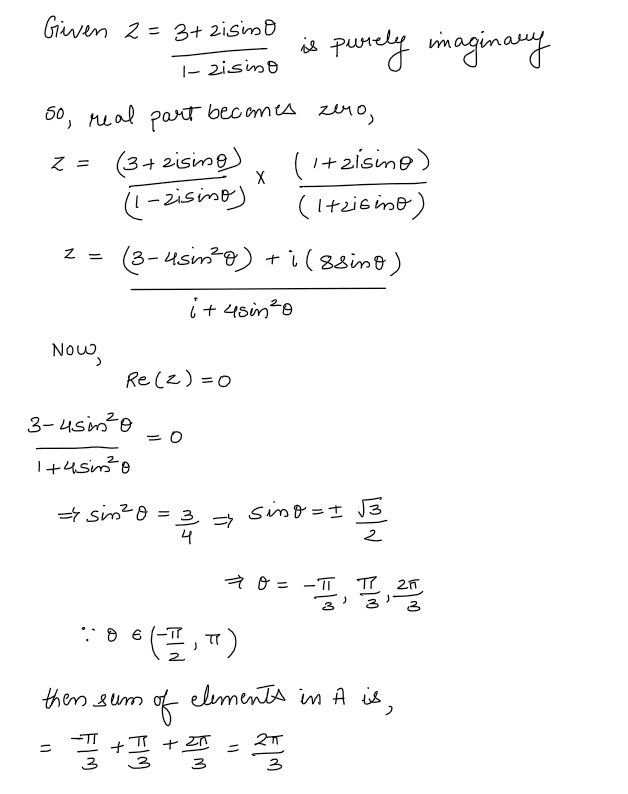 Given Z = (3 + 2i sinθ) / (1 - 2i sinθ) is purely imaginary
so, real part becomes zero,
z = (3 + 2i sinθ) / (1 - 2i sinθ) × (1 + 2i sinθ) / (1 + 2i sinθ)
z = ((3 - 4 sin²θ) + i (8 sinθ)) / (i + 4 sin²θ)
Now,
Re(z) = 0
(3 - 4 sin²θ) / (1 + 4 sin²θ) = 0
⇒ sin²θ = 3/4 ⇒ sinθ = ± √3/2
⇒ θ = -π/3, π/3, 2π/3
∵ θ ∈ (-π/2, π)
then sum of elements in A is,
= -π/3 + π/3 + 2π/3 = 2π/3